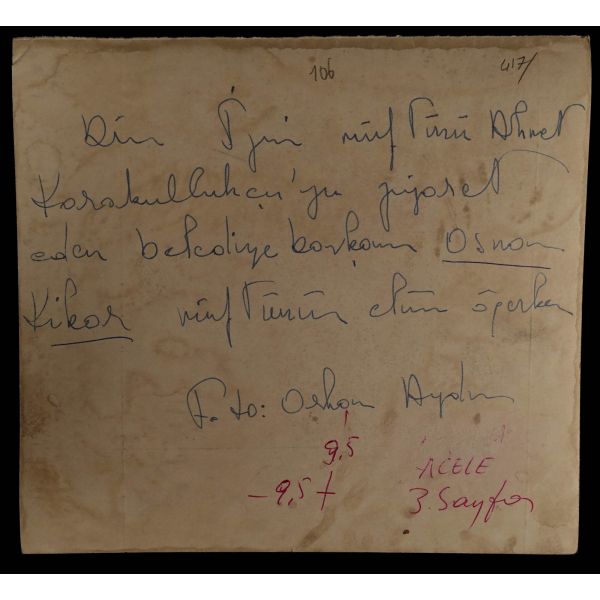 106
417/
Dün müftünü Ahmet
Karakullukçu'yu ziyaret
eden belediye başkanı Osman
Kikar müftünün elini öperken
Foto: Orhan Aydın
9,5
-9,5+
ACELE
3. Sayfa